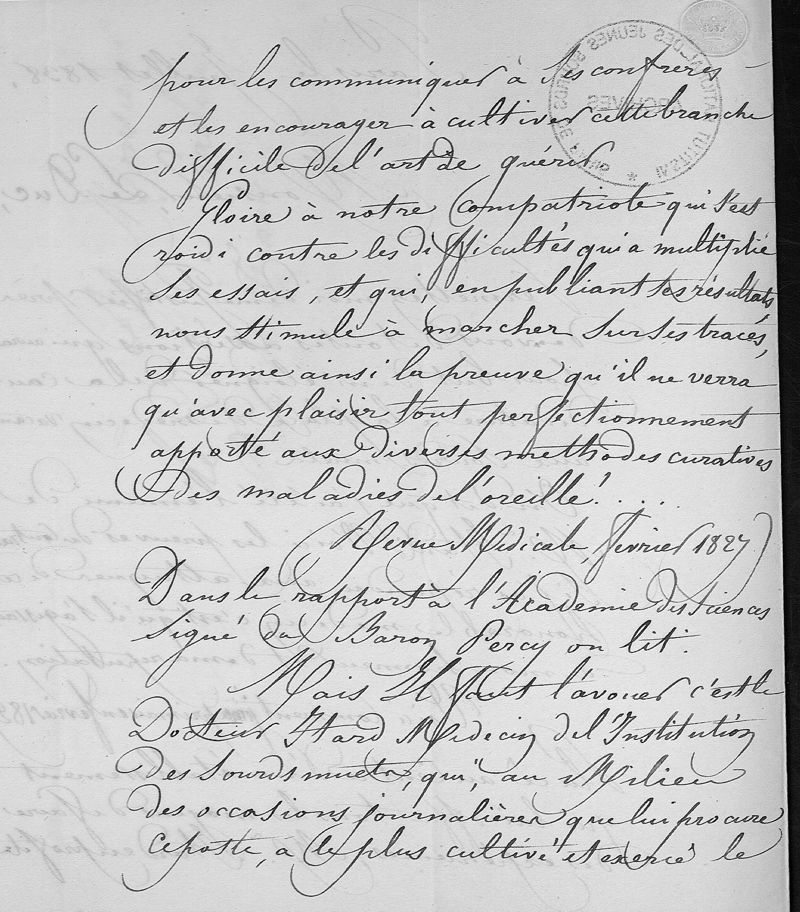 pour les communiquer à ses confrères
et les encourager à cultiver cette branche
difficile de l'art de guérir.
Gloire à notre compatriote qui s'est
roidi contre les difficultés qui a multiplié
ses essais, et qui, en publiant ses résultats,
nous stimule à marcher sur ses traces,
et donne ainsi la preuve qu'il ne verra
qu'avec plaisir tout perfectionnement
apporté aux diverses methodes curatives
des maladies de l'oreille! ....
(Revue Medicale, fevrier 1827)
Dans le rapport à l'Academie des Sciences
Signé du Baron Percy on lit.
Mais Il faut l'avouer c'est le
Docteur Itard Medecin de l'Institution
des Sourds muets, qui, au Milieu
des occasions journalières que lui procure
ce poste, a le plus cultivé et exercé le